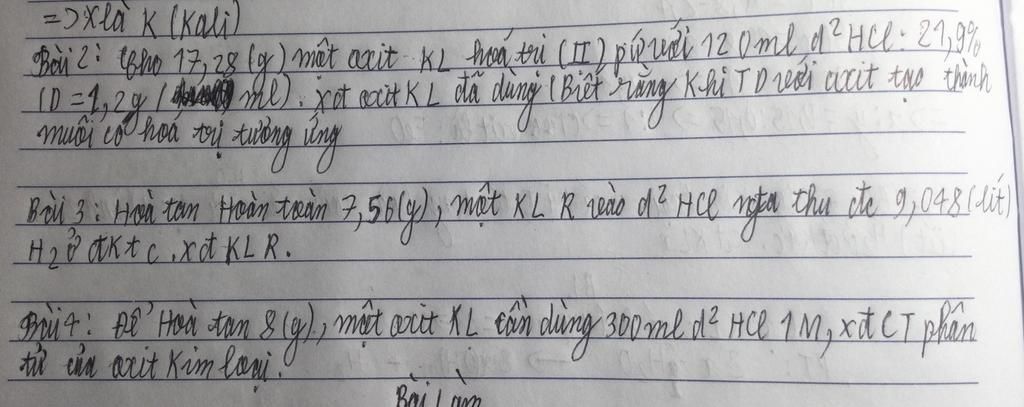 => X là K (Kali)
Bài 2: Cho 17,28 (g) một oxit KL hoá trị (II) pứ với 120ml d² HCl: 21,9%
(D = 1,2g / ml). xđ oxit KL đã dùng (Biết rằng khi TD với axit tạo thành
muối có hoá trị tương ứng
Bài 3: Hoà tan Hoàn toàn 7,56(g), một KL R vào d² HCl ngta thu đc 9,048 (lít)
H2 ở đktc. xđ KL R.
Bài 4: Để Hoà tan 8 (g), một oxit KL cần dùng 300ml d² HCl 1M, xđ CT phân
tử của oxit Kim loại.
Bài Làm